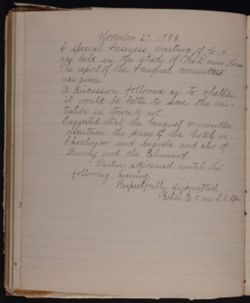 November 22, 1898.
A special business meeting of
was held in the study of
The report of the Banquet committee
was given.
A discussion followed as to whether
it would be better to have the
in town or not.
Suggested that the banquet committee
ascertain the price of the hotel in
Skowhegan and Augusta and also of
and the Elmwood.
Meeting adjourned until the
following evening.
Respectfully submitted